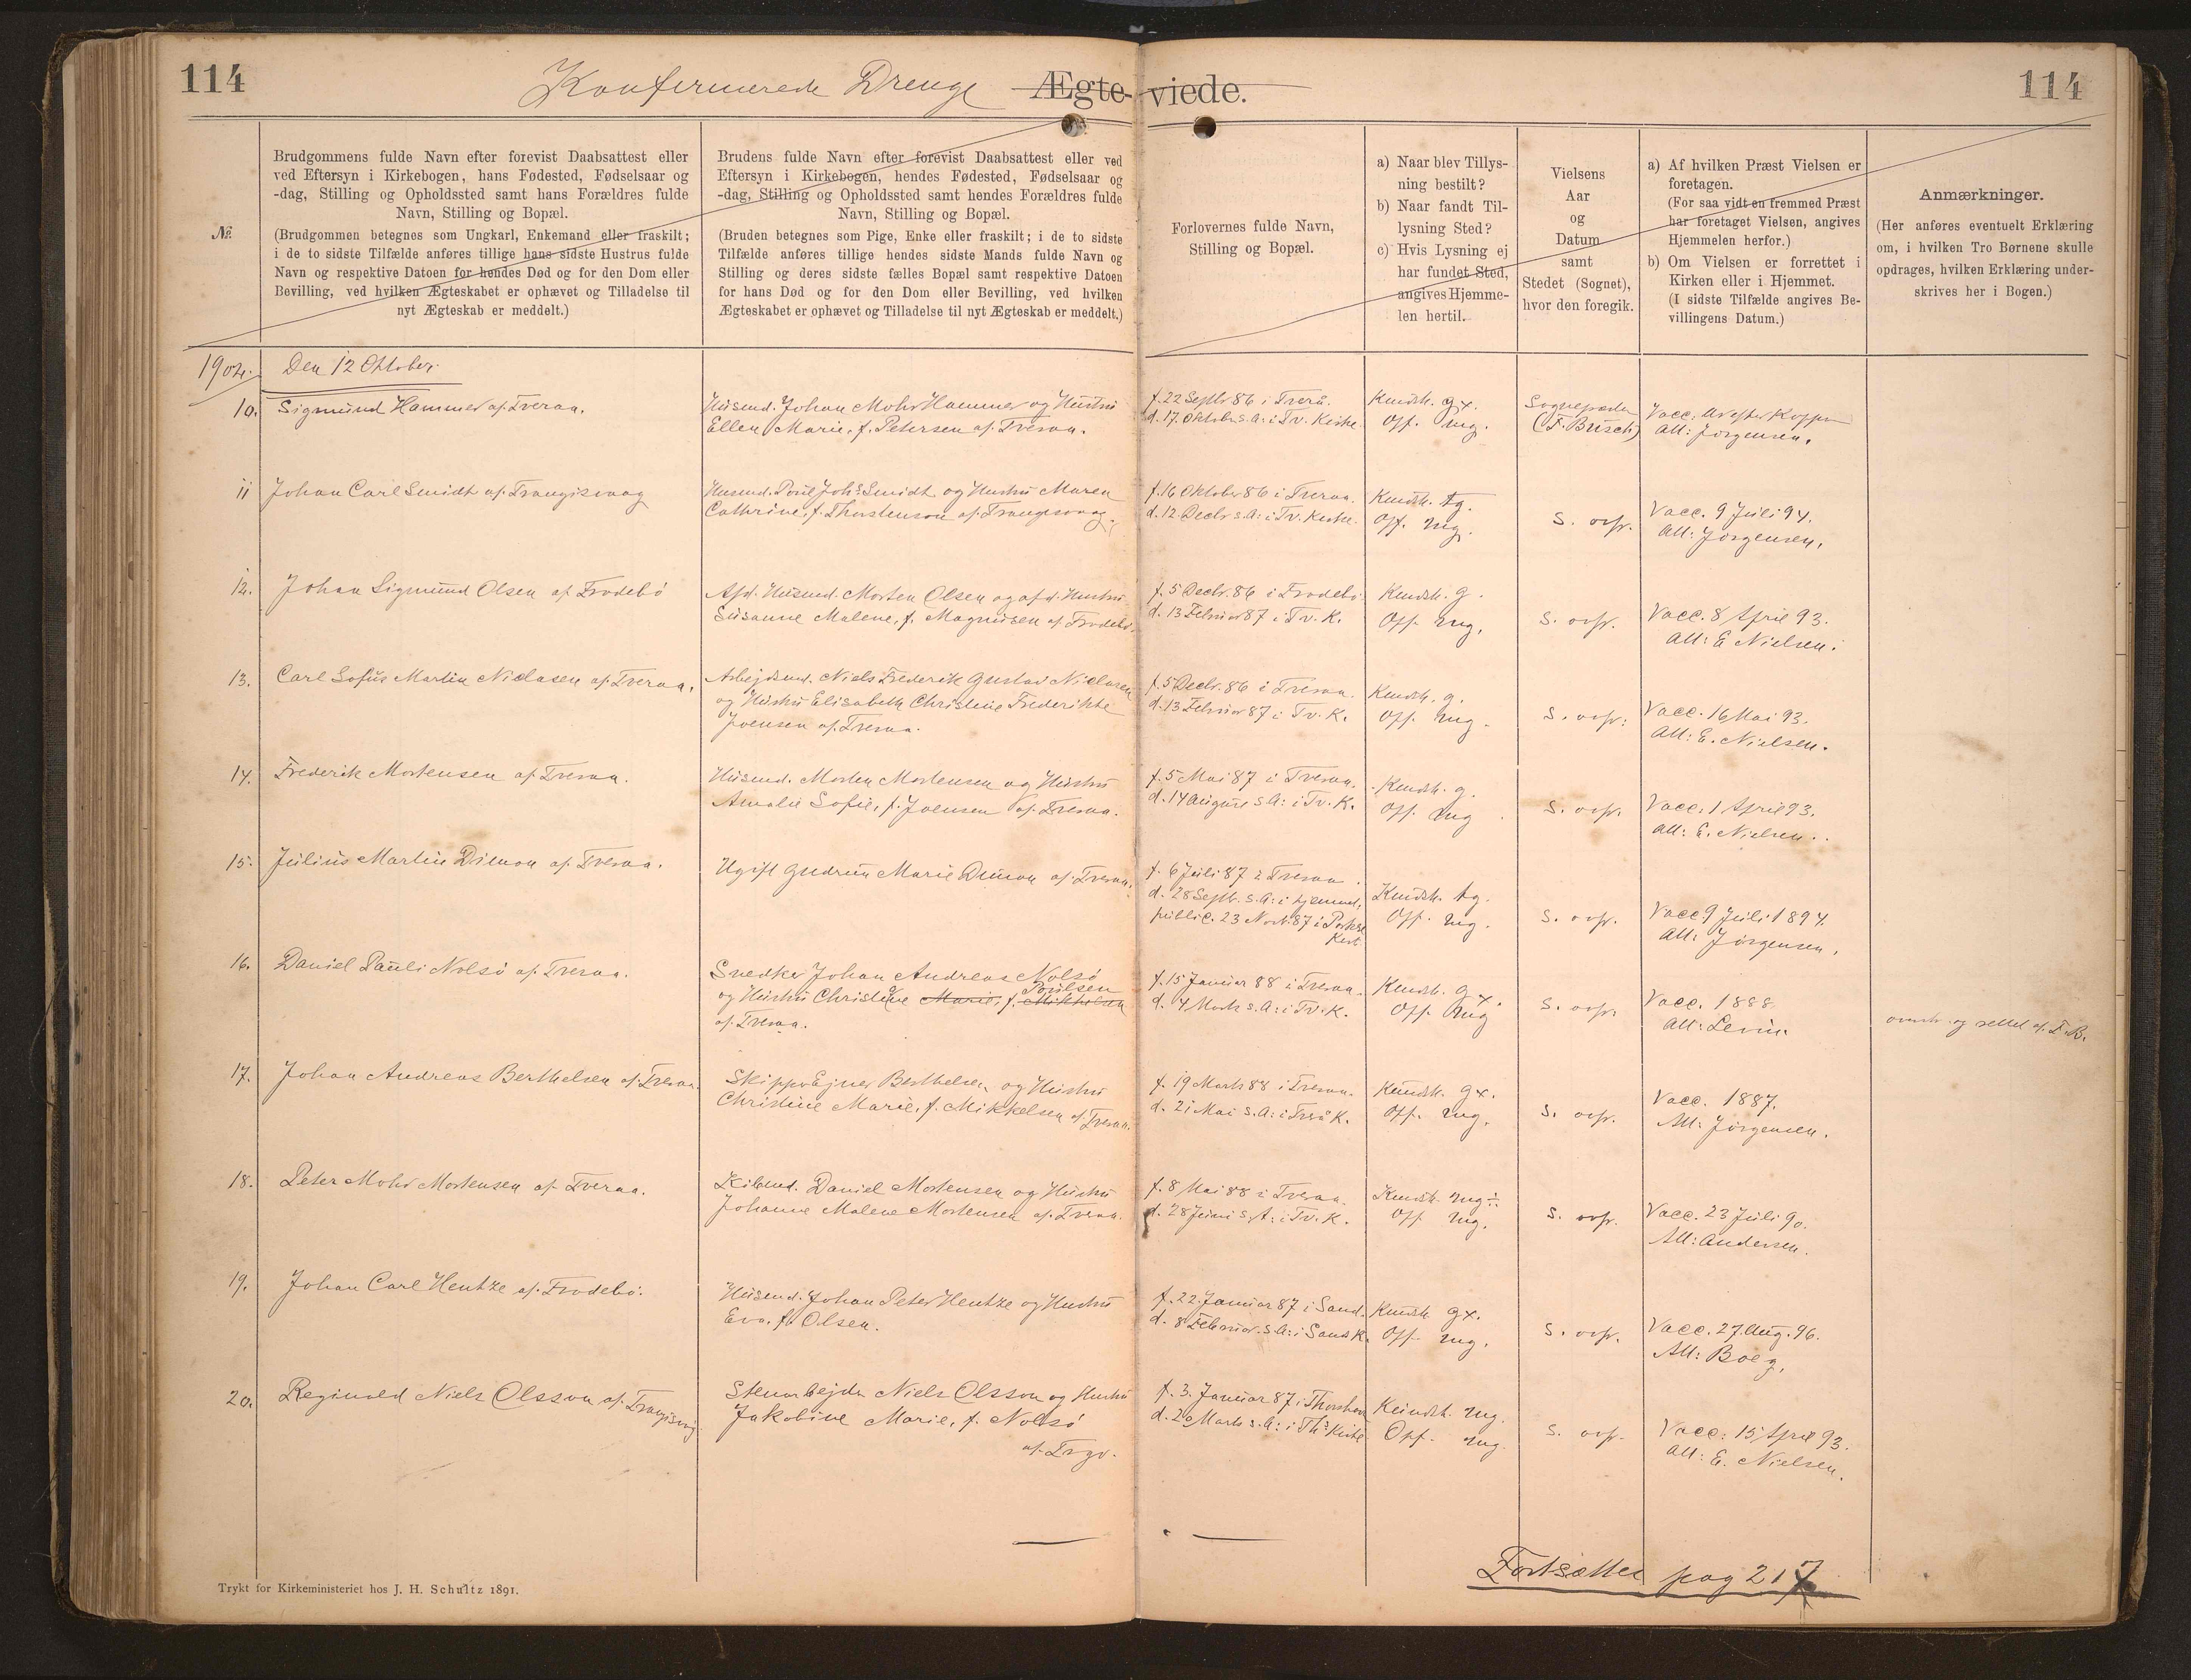 114
Konfirmerede Drenge Ægteviede.
114
№
Brudgommens fulde Navn efter forevist Daabsattest eller
ved Eftersyn i Kirkebogen, hans Fødested, Fødselsaar og
-dag, Stilling og Opholdssted samt hans Forældres fulde
Navn, Stilling og Bopæl.
(Brudgommen betegnes som Ungkarl, Enkemand eller fraskilt;
i de to sidste Tilfælde anføres tillige hans sidste Hustrus fulde
Navn og respektive Datoen for hendes Død og for den Dom eller
Bevilling, ved hvilken Ægteskabet er ophævet og Tilladelse til
nyt Ægteskab er meddelt.)
Brudens fulde Navn efter forevist Daabsattest eller ved
Eftersyn i Kirkebogen, hendes Fødested, Fødselsaar og
-dag, Stilling og Opholdssted samt hendes Forældres fulde
Navn, Stilling og Bopæl.
(Bruden betegnes som Pige, Enke eller fraskilt; i de to sidste
Tilfælde anføres tillige hendes sidste Mands fulde Navn og
Stilling og deres sidste fælles Bopæl samt respektive Datoen
for hans Død og for den Dom eller Bevilling, ved hvilken
Ægteskabet er ophævet og Tilladelse til nyt Ægteskab er meddelt.)
Forlovernes fulde Navn,
Stilling og Bopæl.
a) Naar blev Tillys-
ning bestilt?
b) Naar fandt Til-
lysning Sted?
c) Hvis Lysning ej
har fundet Sted,
angives Hjemme-
len hertil.
Vielsens
Aar
og
Datum
samt
Stedet (Sognet),
hvor den foregik.
a) Af hvilken Præst Vielsen er
foretagen.
(For saa vidt en fremmed Præst
har foretaget Vielsen, angives
Hjemmelen herfor.)
b) Om Vielsen er forrettet i
Kirken eller i Hjemmet.
(I sidste Tilfælde angives Be-
villingens Datum.)
Anmærkninger.
(Her anføres eventuelt Erklæring
om, i hvilken Tro Børnene skulle
opdrages, hvilken Erklæring under-
skrives her i Bogen.)
1902. Den 12 Oktober.
10. Sigmund Hammer af Tveraa.
Husmd. Johan Mohr Hammer og Hustru
Ellen Marie, f. Petersen af Tveraa.
f. 22 Septb 86 i Tverå.
d. 17. Oktober s. A: i Tv. Kirke.
Kundsk. g x.
Opf. mg.
Sognepræsten
(F. Busch)
Vacc.
Att: Jørgensen.
11 Johan Carl Smidt af Trangisvaag
Husmd. Poul Johs Smidt og Hustru Maren
Cathrine, f. Thorstenson af Trangisvaag.
f. 16 Oktober 86 i Tveraa.
d. 12 Decbr s. A: i Tv. Kirke.
Kundsk. tg.
Opf. mg.
S. ovfr.
Vacc. 9 Juli 94.
Att: Jørgensen.
12. Johan Sigmund Olsen af Frodebø
Afd. Husmd. Morten Olsen og afd. Hustru
Susanne Malene, f. Magnusen af Frodebø.
f. 5 Decbr. 86 i Frodebø.
d. 13 Februar 87 i Tv. K.
Kundsk. g.
Opf. mg.
S. ovfr.
Vacc. 8 April 93.
Att: E Nielsen.
13. Carl Sofus Martin Niclasen af Tveraa.
Arbejdsmd. Niels Frederik Gustav Niclasen
og Hustru Elisabeth Christine Frederikke
Joensen af Tveraa.
f. 5 Decbr. 86 i Tveraa.
d. 13 Februar 87 i Tv. K.
Kundsk. g.
Opf. mg.
S. ovfr.
Vacc. 16 Mai 93.
Att: E. Nielsen.
14. Frederik Mortensen af Tveraa.
Husmd. Morten Mortensen og Hustru
Amalie Sofie, f. Joensen af Tveraa.
f. 5 Mai 87 i Tveraa.
d. 14 August s A: i Tv. K.
Kundsk. g.
Opf. mg
S. ovfr.
Vacc. 1 April 93.
Att: E. Nielsen.
15. Julius Martin Dimon af Tveraa.
Ugift Gudrun Marie Dimon af Tveraa.
f. 6 Juli 87 i Tveraa.
d. 28 Septb. s. A: i Hjemmet,
public. 23 Novb. 87 i
Kundsk. tg.
Opf. mg.
S. ovfr.
Vacc 9 Juli 1894.
Att: Jørgensen.
16. Daniel Pauli Nolsø af Tveraa.
Snedker Johan Andreas Nolsø
og Hustru Christine Marie, f. Mikkelsen Poulsen
af Tveraa.
f. 15 Januar 88 i Tveraa.
d. 4 Marts s. A: i Tv. K.
Kundsk. g x.
Opf. mg
S. ovfr.
Vacc. 1888.
Att: Levin.
overstr. og rettet af F. B.
17. Johan Andreas Berthelsen af Tveraa.
Skipper Ejner Berthelsen og Hustru
Christine Marie, f. Mikkelsen af Tveraa.
f. 19 Marts 88 i Tveraa.
d. 21 Mai s. A: i Tverå K.
Kundsk. g x.
Opf. mg.
S. ovfr.
Vacc. 1887.
Att: Jørgensen.
18. Peter Mohr Mortensen af Tveraa.
Daniel Mortensen og Hustru
Johanne Malene Mortensen af Tveraa.
f. 8 Mai 88 i Tveraa.
d. 28 Juni s. A: i Tv. K.
Kundsk. mg ÷
Opf mg.
S. ovfr.
Vacc. 23 Juli 90.
Att: Andersen.
19. Johan Carl Hentze af Frodebø.
Husmd. Johan Peter Hentze og Hustru
Eva, f. Olsen.
f. 22. Januar 87 i Sand.
d. 8 Februar. s. A: i Sand K.
Kundsk. g x.
Opf. mg.
S. ovfr.
Vacc. 27. Aug. 96.
Att: Boeg.
20. Reginald Niels Olsson af Trangisvg.
Stenarbejder Niels Olsson og Hustru
Jakobine Marie, f. Nolsø
af Trgv.
f. 3. Januar 87 i Thorshavn
d. 20 Marts s. A: i Ths Kirke
Kundsk. mg.
Opf. mg.
S. ovfr.
Vacc: 15 April 93.
Att: E. Nielsen.
Fortsættes pag 217
Trykt for Kirkeministeriet hos J. H. Schultz 1891.